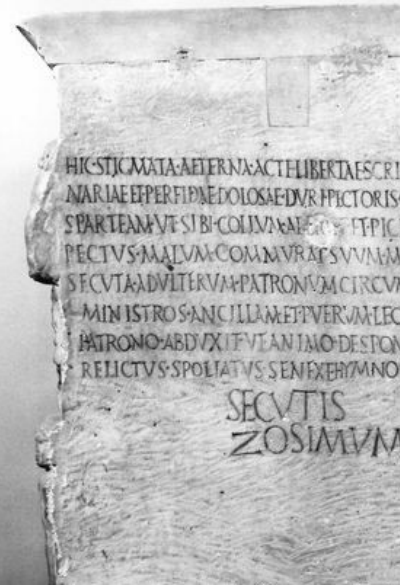 HIC·STIGMATA·AETERNA·ACTE·LIBERTAE·SCRI
NARIAE·ET·PERFIDAE·DOLOSAE·DVRI·PECTORIS·
SPARTEAM·VT·SIBI·COLLVM· ET·PIC
PECTVS·MALVM·COMMVRAT·SVVM·M
SECVTA·ADVLTERVM·PATRONVM·CIRCVM
MINISTROS·ANCILLAM·ET·PVERVM·LEC
PATRONO·ABDVXIT·VT·ANIMO·DESPON
RELICTVS·SPOLIATVS·SENEX·E·HYMNO
SECVTIS
ZOSIMVM